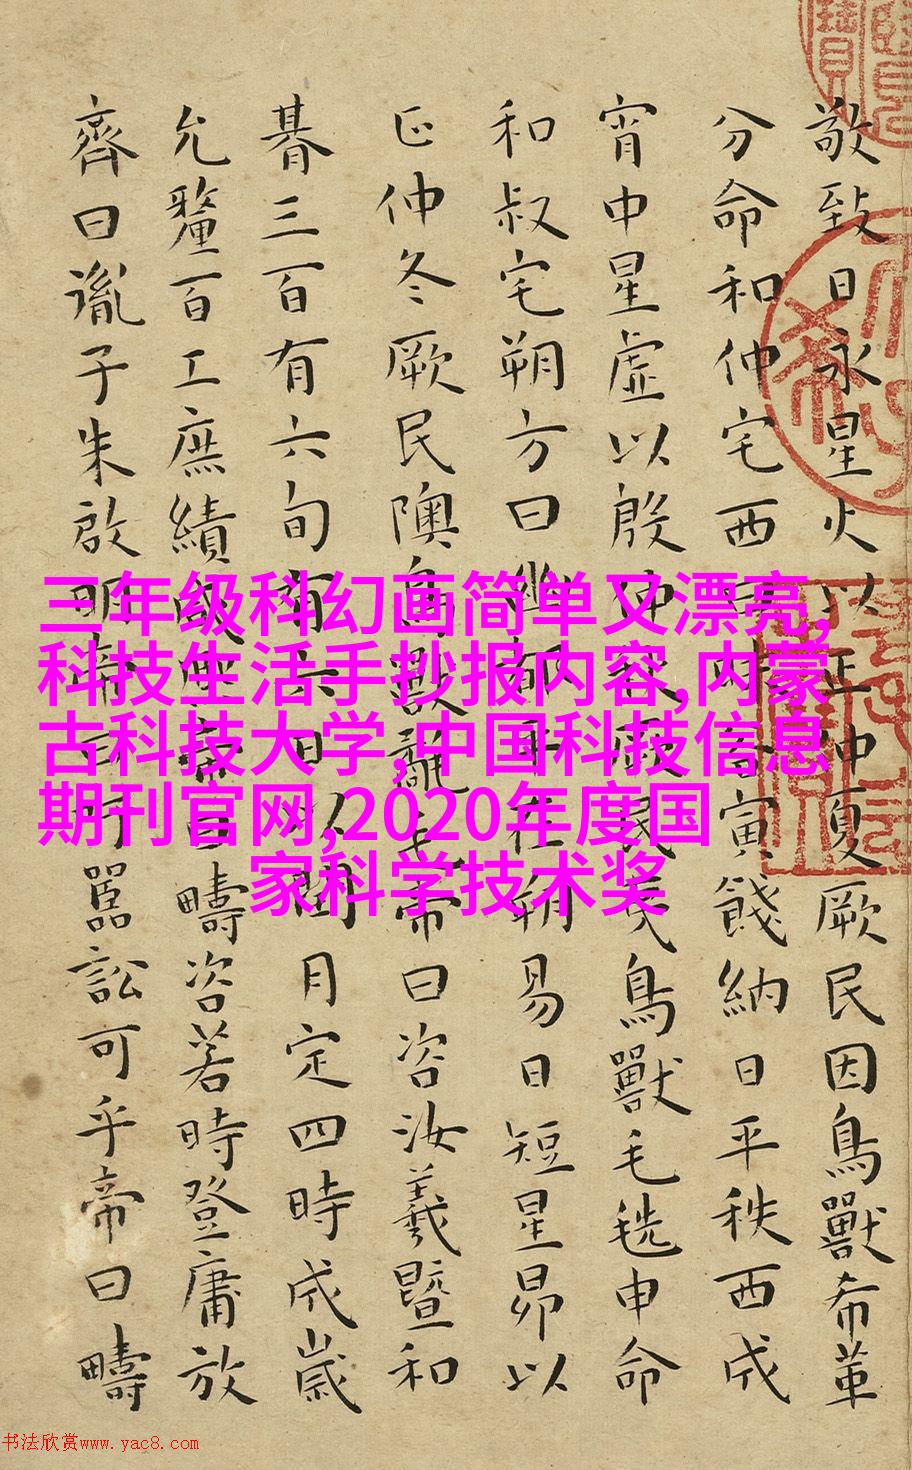 敬致日永星火以正仲夏厥民因鳥獸希革
分命和仲宅西寅餞納日平秩西成
宵中星虛以殷仲秋厥民夷鳥獸毛毨申命
和叔宅朔方曰幽都平在朔易日短星昴以
正仲冬厥民隩鳥獸氄毛帝曰咨汝羲暨和
朞三百有六旬有六日以閏月定四時成歲
允釐百工庶績咸熙帝曰疇咨若時登庸放
齊曰胤子朱啟明帝曰吁嚚訟可乎帝曰疇
三年级科幻画简单又漂亮,
科技生活手抄报内容,内蒙
古科技大学,中国科技信息
期刊官网,2020年度国
家科学技术奖
书法欣赏www.yac8.com